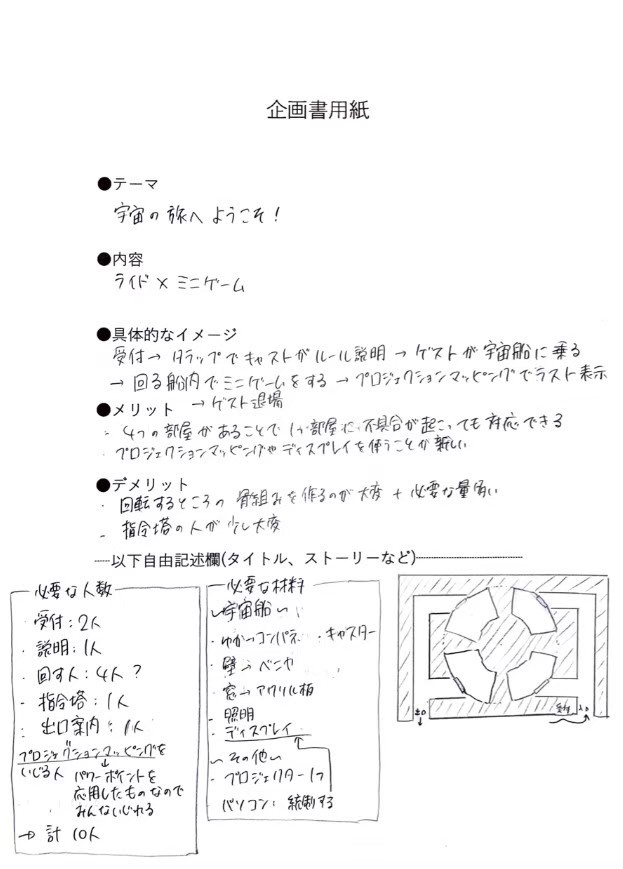 企画書用紙
●テーマ
宇宙の旅へようこそ!
●内容
ライド×ミニゲーム
●具体的なイメージ
受付→タラップでキャストがルール説明→ゲストが宇宙船に乗る
→回る船内でミニゲームをする→プロジェクションマッピングでラスト表示
→ゲスト退場
●メリット
・4つの部屋があることで1つ部屋に不具合が起こっても対応できる
・プロジェクションマッピングやディスプレイを使うことが新しい
●デメリット
・回転するところの骨組みを作るのが大変+必要な量多い
・指令塔の人が少し大変
以下自由記述欄(タイトル、ストーリーなど)
必要な人数
・受付:2人
・説明:1人
・回す人:4人?
・指令塔:1人
・出口案内:1人
プロジェクションマッピングを
いじる人
パワーポイントを
応用したものなので
みんないじれる
→計10人
必要な材料
〜宇宙船〜
・ゆか→コンパネ ・キャスター
・壁→ベニヤ
・窓→アクリル板
・照明
・ディスプレイ
〜その他〜
・プロジェクター1つ
パソコン:統制する
出口
受付
入口